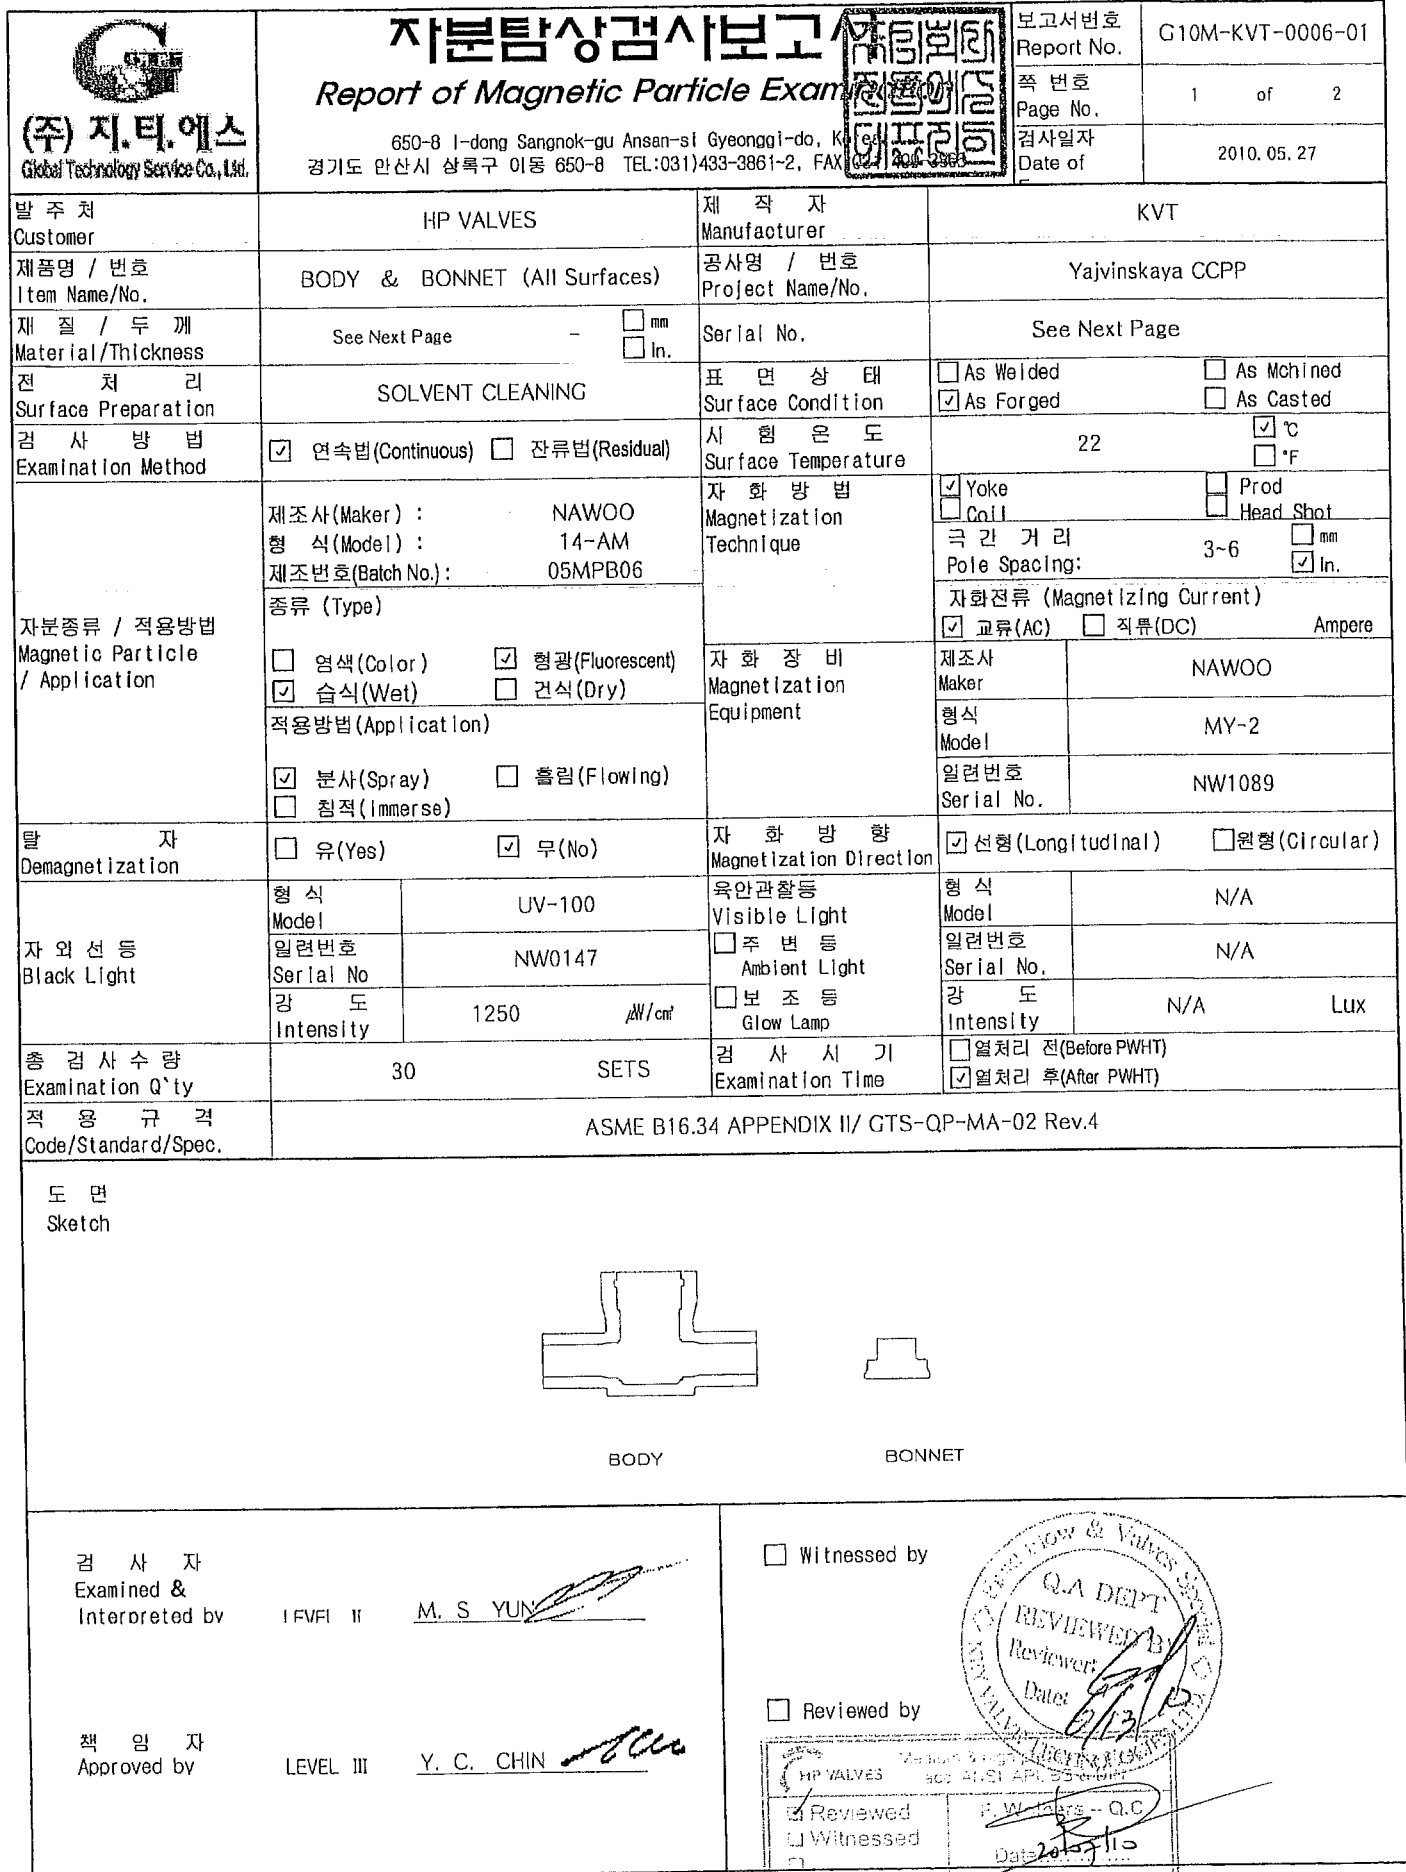 (주) 지.티.에스
Global Technology Service Co., Ltd.
자분탐상검사보고
Report of Magnetic Particle Examination
650-8 I-dong Sangnok-gu Ansan-si Gyeonggi-do, Korea
경기도 안산시 상록구 이동 650-8 TEL:031)433-3861-2, FAX
보고서번호
Report No.
G10M-KVT-0006-01
쪽 번호
Page No.
1 of 2
검사일자
Date of
2010. 05. 27
발 주 처
Customer
HP VALVES
제 작 자
Manufacturer
KVT
제품명 / 번호
Item Name/No.
BODY & BONNET (All Surfaces)
공사명 / 번호
Project Name/No.
Yajvinskaya CCPP
재 질 / 두 께
Material/Thickness
See Next Page - ☐ mm
☐ In.
Serial No.
See Next Page
전 처 리
Surface Preparation
SOLVENT CLEANING
표 면 상 태
Surface Condition
☐ As Welded ☐ As Mchined
☑ As Forged ☐ As Casted
검 사 방 법
Examination Method
☑ 연속법(Continuous) ☐ 잔류법(Residual)
시 험 온 도
Surface Temperature
22 ☑ ℃
☐ °F
자분종류 / 적용방법
Magnetic Particle
/ Application
제조사(Maker) : NAWOO
형 식(Model) : 14-AM
제조번호(Batch No.) : 05MPB06
종류 (Type)
☐ 염색(Color) ☑ 형광(Fluorescent)
☑ 습식(Wet) ☐ 건식(Dry)
적용방법(Application)
☑ 분사(Spray) ☐ 흘림(Flowing)
☐ 침적(Immerse)
자 화 방 법
Magnetization
Technique
☑ Yoke ☐ Prod
☐ Coil ☐ Head Shot
극 간 거 리
Pole Spacing:
3~6 ☐ mm
☑ In.
자화전류 (Magnetizing Current)
☑ 교류(AC) ☐ 직류(DC) Ampere
자 화 장 비
Magnetization
Equipment
제조사
Maker
NAWOO
형식
Model
MY-2
일련번호
Serial No.
NW1089
탈 자
Demagnetization
☐ 유(Yes) ☑ 무(No)
자 화 방 향
Magnetization Direction
☑ 선형(Longitudinal) ☐ 원형(Circular)
자 외 선 등
Black Light
형 식
Model
UV-100
일련번호
Serial No
NW0147
강 도
Intensity
1250 ㎼/㎠
육안관찰등
Visible Light
☐ 주 변 등
Ambient Light
☐ 보 조 등
Glow Lamp
형 식
Model
N/A
일련번호
Serial No.
N/A
강 도
Intensity
N/A Lux
총 검 사 수 량
Examination Q`ty
30 SETS
검 사 시 기
Examination Time
☐ 열처리 전(Before PWHT)
☑ 열처리 후(After PWHT)
적 용 규 격
Code/Standard/Spec.
ASME B16.34 APPENDIX II/ GTS-QP-MA-02 Rev.4
도 면
Sketch
BODY
BONNET
검 사 자
Examined &
Interpreted by LEVEL II M. S YUN
책 임 자
Approved by LEVEL III Y. C. CHIN
☐ Witnessed by
☐ Reviewed by
Flow & Valves Special
Q.A DEPT
REVIEWED BY
Reviewer:
Date: 6/13/10
HP VALVES
☑ Reviewed
☐ Witnessed
Q.C
Date